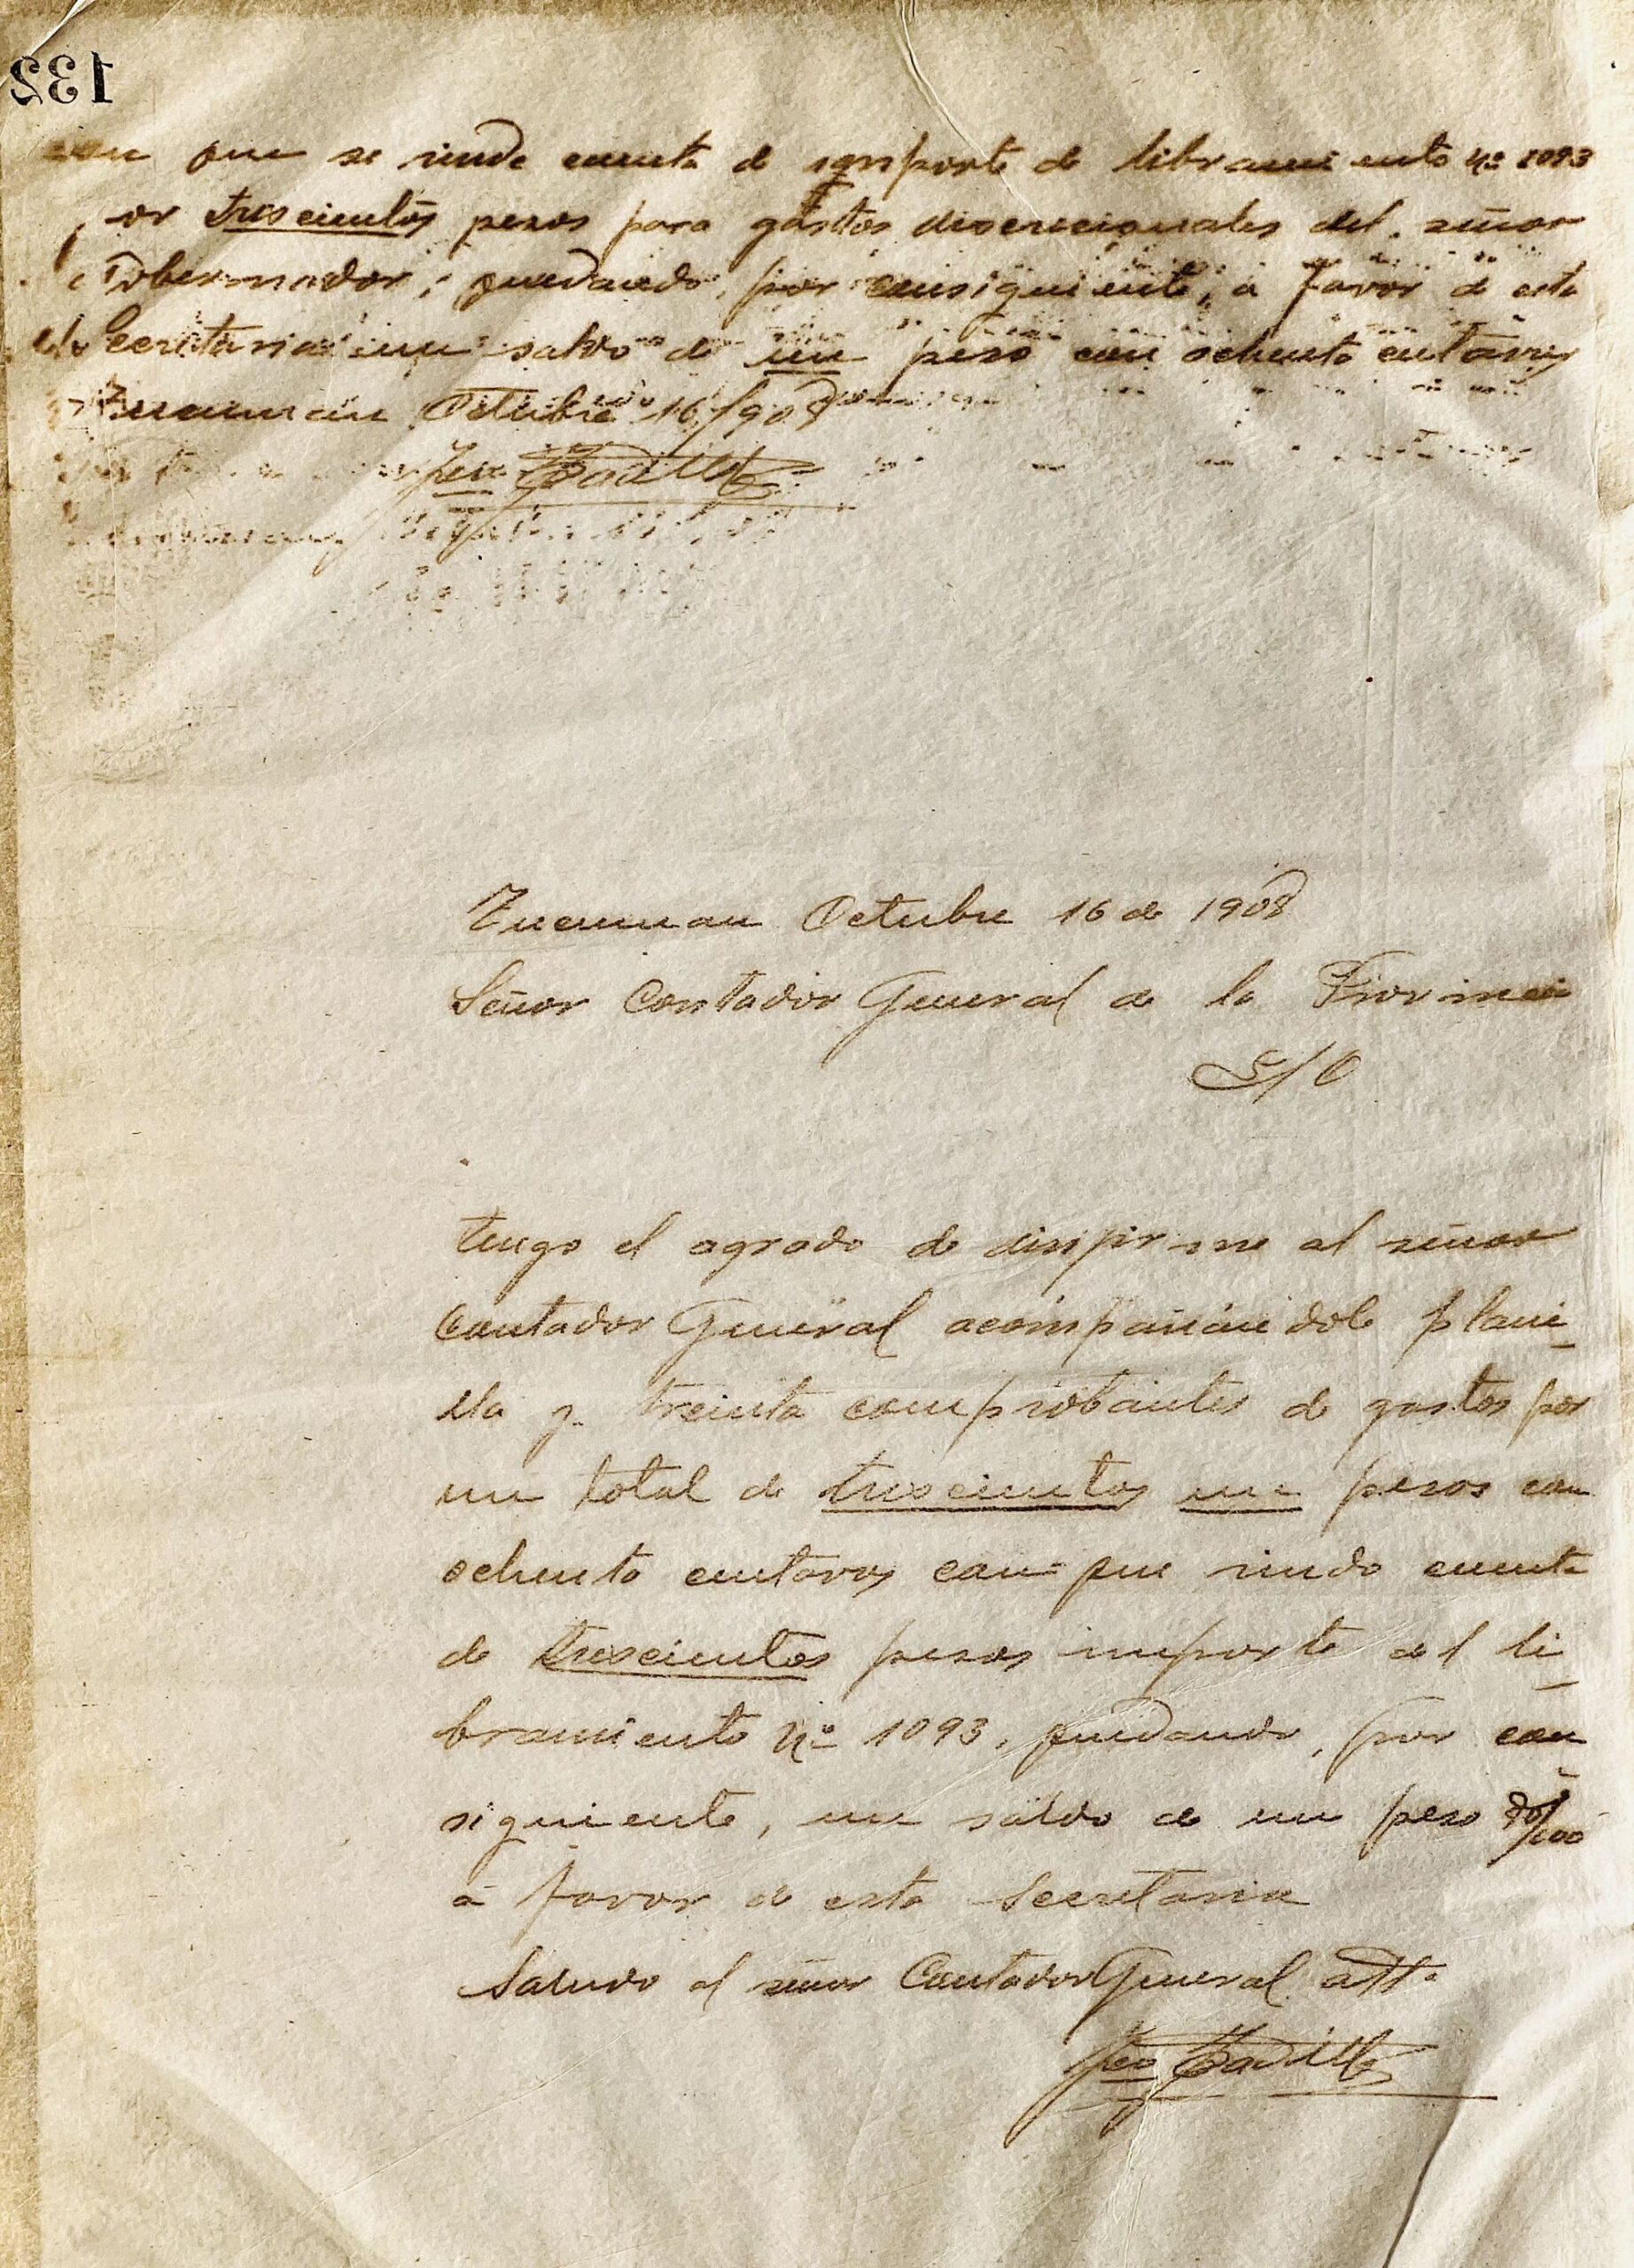 132
con que se rinde cuenta de importe de libramiento nº 1093
por trescientos pesos para gastos discrecionales del señor
Gobernador, quedando, por consiguiente, á favor de esta
Secretaria un saldo de un peso con ochenta centavos
Tucuman Octubre 16/908
Padilla
Tucuman Octubre 16 de 1908
Señor Contador General de la Provincia
S/O
Tengo el agrado de dirijirme al señor
Contador General acompañándole plani
lla y treinta comprobantes de gastos por
un total de trescientos un pesos con
ochenta centavos con que rindo cuenta
de trescientos pesos importe del li
bramiento Nº 1093, quedando, por con
siguiente, un saldo de un peso 80/100
á favor de esta Secretaria
Saludo al señor Contador General att.
Padilla